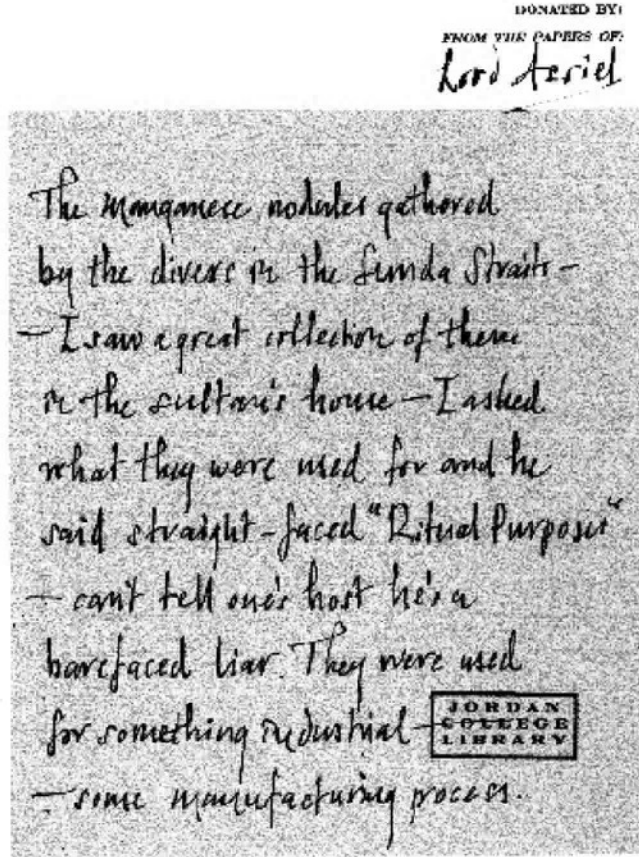 DONATED BY:
FROM THE PAPERS OF:
Lord Asriel
The manganese nodules gathered
by the divers in the Sunda Straits –
– I saw a great collection of them
in the sultan's house – I asked
what they were used for and he
said straight-faced "Ritual Purposes"
– can't tell one's host he's a
barefaced liar. They were used
for something industrial –
JORDAN
COLLEGE
LIBRARY
– some manufacturing process.